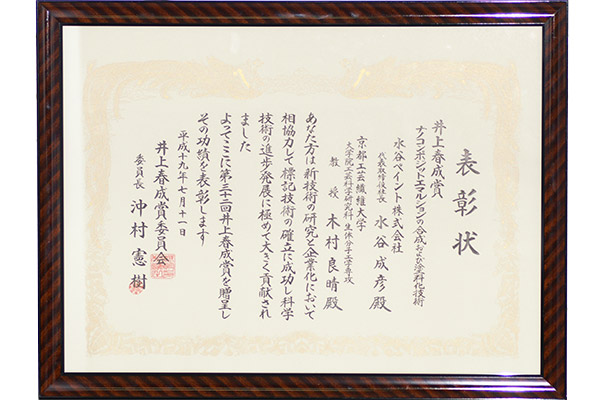 表彰状
井上春成賞
ナノコンポジットエマルションの合成および塗料化技術
水谷ペイント株式会社
代表取締役社長 水谷成彦殿
京都工芸繊維大学
大学院工芸科学研究科 生体分子工学専攻
教授 木村良晴殿
あなた方は新技術の研究と企業化において
相協力して標記技術の確立に成功し科学
技術の進歩発展に極めて大きく貢献され
ました
よってここに第三十二回井上春成賞を贈呈し
その功績を表彰します
平成十九年七月十一日
井上春成賞委員会
委員長 沖村憲樹